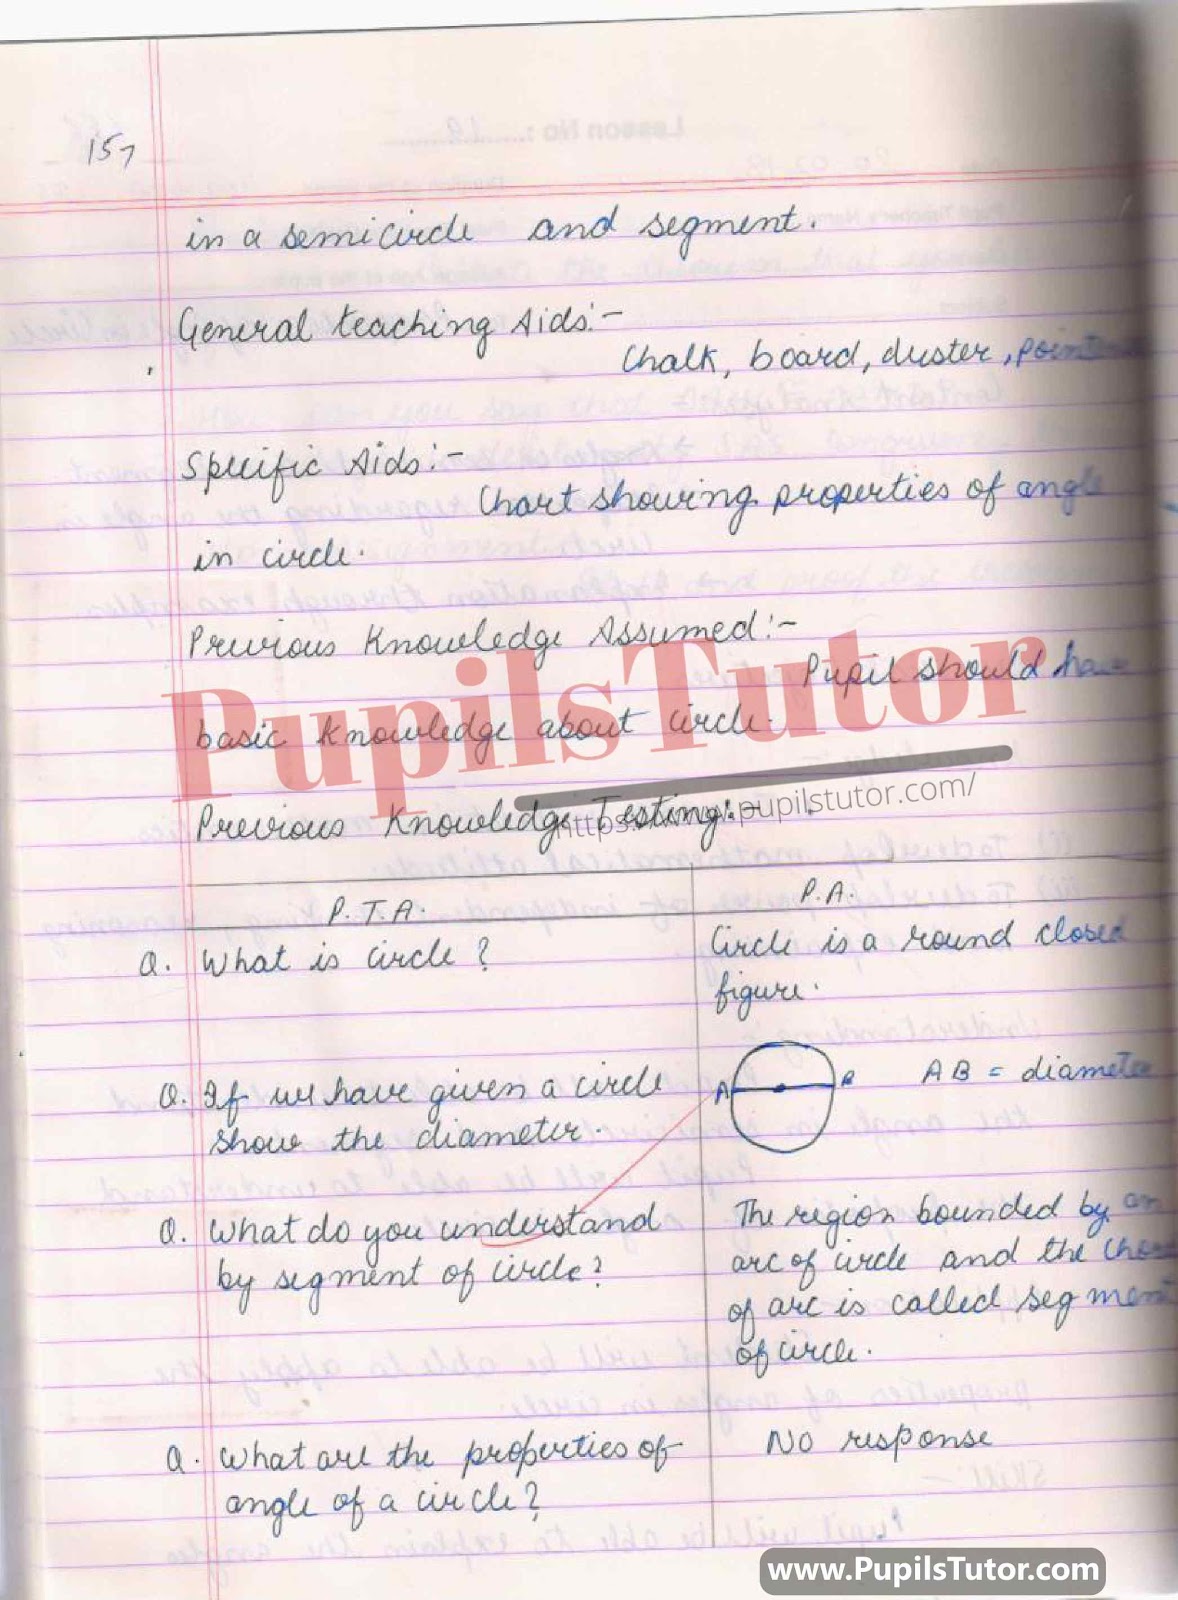 157
in a semicircle and segment.
General teaching Aids:-
Chalk, board, duster,
Specific Aids:-
Chart showing properties of angle
in circle.
Previous Knowledge Assumed:-
Pupil should have
basic knowledge about circle.
PupilsTutor
Previous Knowledge Testing:-
https://www.pupilstutor.com/
P.T.A. P.A.
Q. What is circle? Circle is a round closed
figure.
Q. If we have given a circle A B AB = diameter
show the diameter.
Q. What do you understand The region bounded by an
by segment of circle? arc of circle and the chord
of arc is called segment
of circle.
Q. What are the properties of No response
angle of a circle?
www.PupilsTutor.com